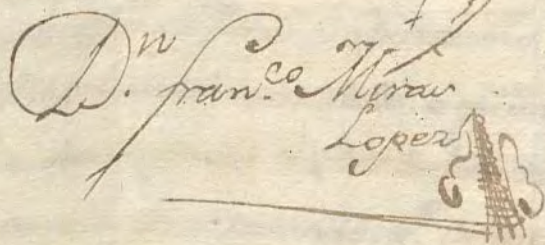 Dn. Franco. Miras
Lopez